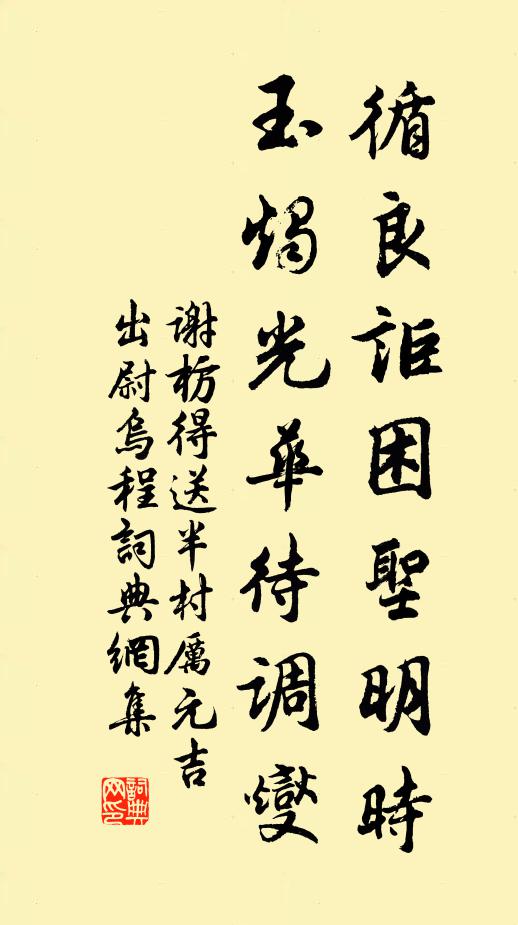 循良詎困聖明時
玉燭光華待調燮
謝枋得送半村厲元吉
出尉烏程詞典網集
詞典
网印